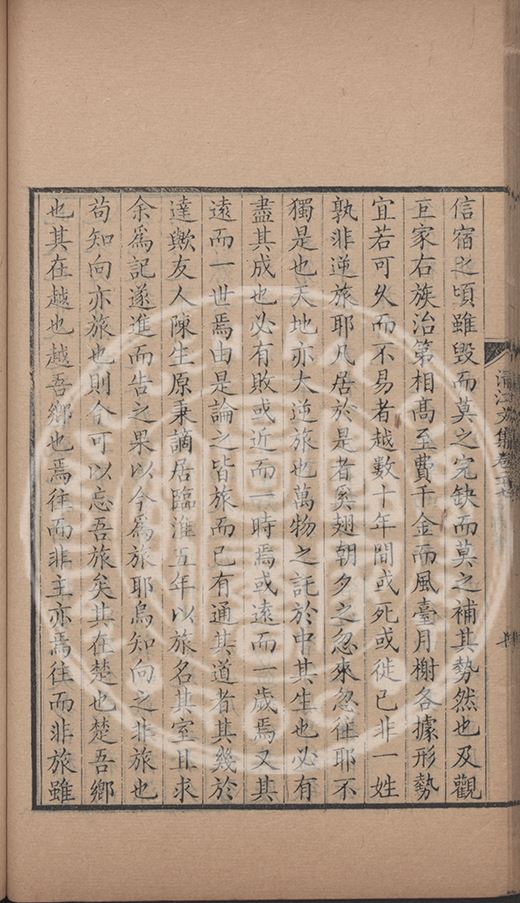 信宿之頃雖毀而莫之完缺而莫之補其勢然也及觀
巨家右族治第相髙至費千金而風臺月榭各據形勢
宜若可久而不易者越數十年間或死或徙已非一姓
孰非逆旅耶凡居於是者奚翅朝夕之忽來忽往耶不
獨是也天地亦大逆旅也萬物之託於中其生也必有
盡其成也必有敗或近而一時焉或遠而一歲焉又其
遠而一世焉由是論之皆旅而已有通其道者其幾於
達歟友人陳生原秉謫居臨淮五年以旅名其室且求
余爲記遂進而告之果以今爲旅耶烏知向之非旅也
茍知向亦旅也則今可以忘吾旅矣其在楚也楚吾鄉
也其在越也越吾鄉也焉往而非主亦焉往而非旅雖